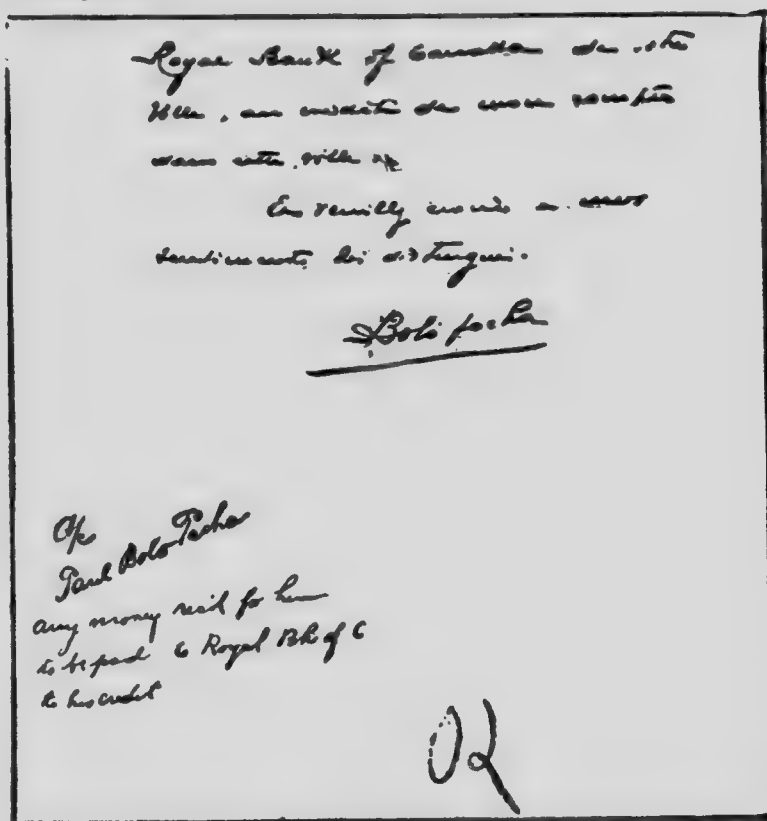 Royal Bank of Canada de votre
Ville, au crédit de mon compte
dans cette ville
En veuillez croire a mes
sentiments les distingués.
Bolo pacha
A/c
Paul Bolo Pacha
any money recd for him
to be paid to Royal Bk of C
to his credit
OK